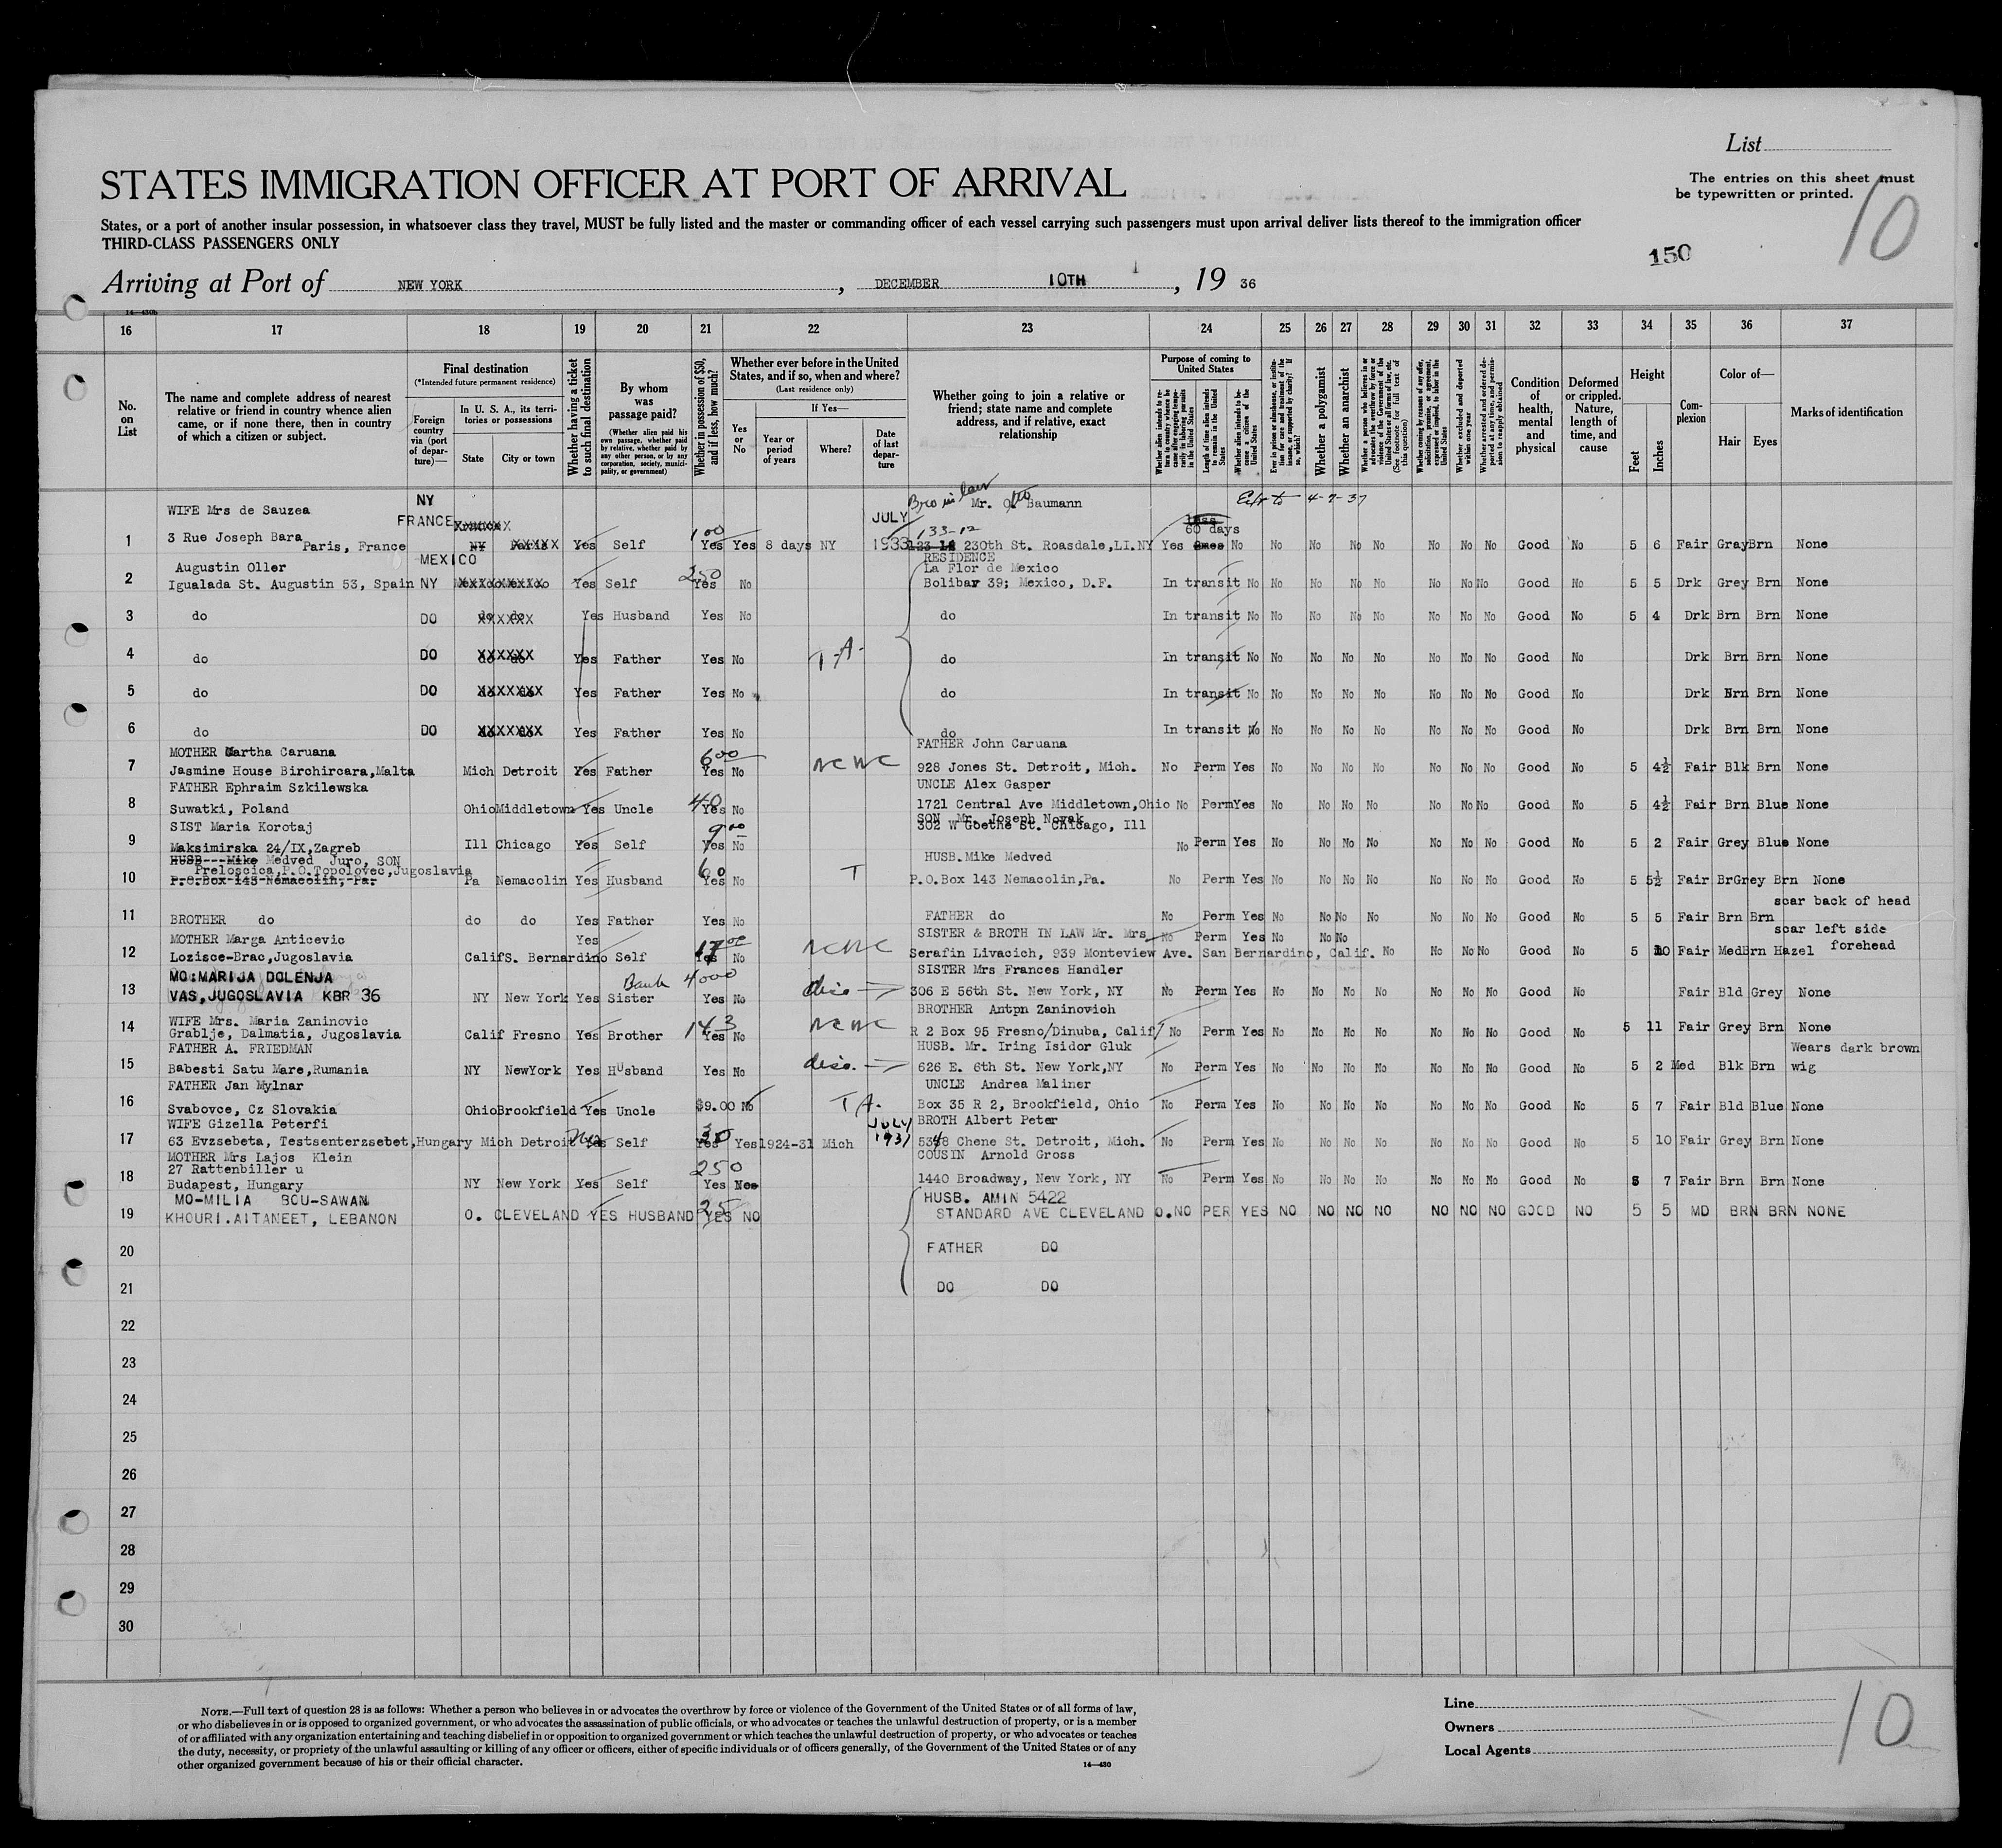 List
The entries on this sheet must
be typewritten or printed.
10
STATES IMMIGRATION OFFICER AT PORT OF ARRIVAL
States, or a port of another insular possession, in whatsoever class they travel, MUST be fully listed and the master or commanding officer of each vessel carrying such passengers must upon arrival deliver lists thereof to the immigration officer
THIRD-CLASS PASSENGERS ONLY
150
Arriving at Port of NEW YORK, DECEMBER 10TH, 19 36
14—430b
16 17 18 19 20 21 22 23 24 25 26 27 28 29 30 31 32 33 34 35 36 37
No. on List
The name and complete address of nearest relative or friend in country whence alien came, or if none there, then in country of which a citizen or subject.
Final destination
(*Intended future permanent residence)
Foreign country via (port of departure)—
In U. S. A., its territories or possessions
State
City or town
Whether having a ticket to such final destination
By whom was passage paid?
(Whether alien paid his own passage, whether paid by relative, whether paid by any other person, or by any corporation, society, municipality, or government)
Whether in possession of $50, and if less, how much?
Whether ever before in the United States, and if so, when and where?
(Last residence only)
Yes or No
If Yes—
Year or period of years
Where?
Date of last departure
Whether going to join a relative or friend; state name and complete address, and if relative, exact relationship
Purpose of coming to United States
Length of time alien intends to remain in the United States
Whether alien intends to become a citizen of the United States
Whether a polygamist
Whether an anarchist
Whether excluded and deported within one year
Condition of health, mental and physical
Deformed or crippled. Nature, length of time, and cause
Height
Feet
Inches
Complexion
Color of—
Hair
Eyes
Marks of identification
NY
Bro in law Mr. Otto Baumann
WIFE Mrs de Sauzea FRANCE JULY 133-12 60 days
1 3 Rue Joseph Bara Paris, France Yes Self 100 Yes Yes 8 days NY 1933 230th St. Roasdale,LI.NY Yes No No No No No No No No Good No 5 6 Fair Gray Brn None
MEXICO RESIDENCE
Augustin Oller La Flor de Mexico
2 Igualada St. Augustin 53, Spain NY Yes Self 250 Yes No Bolibar 39; Mexico, D.F. In transit No No No No No No No No Good No 5 5 Drk Grey Brn None
3 do DO Yes Husband Yes No do In transit No No No No No No No No Good No 5 4 Drk Brn Brn None
4 do DO Yes Father Yes No T.A. do In transit No No No No No No No No Good No Drk Brn Brn None
5 do DO Yes Father Yes No do In transit No No No No No No No No Good No Drk Brn Brn None
6 do DO Yes Father Yes No do In transit No No No No No No No No Good No Drk Brn Brn None
MOTHER Martha Caruana 600 FATHER John Caruana
7 Jasmine House Birchircara,Malta Mich Detroit Yes Father Yes No NCWC 928 Jones St. Detroit, Mich. No Perm Yes No No No No No No No Good No 5 4½ Fair Blk Brn None
FATHER Ephraim Szkilewska UNCLE Alex Gasper
8 Suwatki, Poland Ohio Middletown Yes Uncle 40 Yes No 1721 Central Ave Middletown,Ohio No Perm Yes No No No No No No No Good No 5 4½ Fair Brn Blue None
SIST Maria Korotaj 9.00 SON Mr. Joseph Novak
302 W Goethe St. Chicago, Ill
9 Maksimirska 24/IX,Zagreb Ill Chicago Yes Self Yes No No Perm Yes No No No No No No No Good No 5 2 Fair Grey Blue None
HUSB---Mike Medved Juro, SON HUSB.Mike Medved
Preloscica,P.O.Topolovec,Jugoslavia 60
10 P.O.Box 143 Nemacolin, Pa. Pa Nemacolin Yes Husband Yes No T P.O.Box 143 Nemacolin,Pa. No Perm Yes No No No No No No No Good No 5 5½ Fair BrGrey Brn None
scar back of head
11 BROTHER do do do Yes Father Yes No FATHER do No Perm Yes No No No No No No No Good No 5 5 Fair Brn Brn
MOTHER Marga Anticevic Yes SISTER & BROTH IN LAW Mr. Mrs No Perm Yes No No No scar left side
12 Lozisce-Brac,Jugoslavia Calif S. Bernardino Self Yes No NCWC Serafin Livacich, 939 Monteview Ave. San Bernardino, Calif. No No No No Good No 5 10 Fair MedBrn Hazel forehead
MO:MARIJA DOLENJA Bank 4000 SISTER Mrs Frances Handler
13 VAS,JUGOSLAVIA KBR 36 NY New York Yes Sister Yes No disc. 306 E 56th St. New York, NY No Perm Yes No No No No No No No Good No Fair Bld Grey None
WIFE Mrs. Maria Zaninovic 143 BROTHER Antpn Zaninovich
14 Grablje, Dalmatia, Jugoslavia Calif Fresno Yes Brother Yes No NCWC R 2 Box 95 Fresno/Dinuba, Calif No Perm Yes No No No No No No No Good No 5 11 Fair Grey Brn None
FATHER A. FRIEDMAN HUSB. Mr. Iring Isidor Gluk Wears dark brown
15 Babesti Satu Mare,Rumania NY NewYork Yes Husband Yes No disc. 626 E. 6th St. New York,NY No Perm Yes No No No No No No No Good No 5 2 Med Blk Brn wig
FATHER Jan Mylnar UNCLE Andrea Maliner
16 Svabovce, Cz Slovakia Ohio Brookfield Yes Uncle $9.00 No T.A. Box 35 R 2, Brookfield, Ohio No Perm Yes No No No No No No No Good No 5 7 Fair Bld Blue None
WIFE Gizella Peterfi JULY BROTH Albert Peter
17 63 Evzsebeta, Testsenterzsebet,Hungary Mich Detroit Self 30 Yes 1924-31 Mich 1931 5348 Chene St. Detroit, Mich. No Perm Yes No No No No No No No Good No 5 10 Fair Grey Brn None
MOTHER Mrs Lajos Klein COUSIN Arnold Gross
27 Rattenbiller u 250
18 Budapest, Hungary NY New York Yes Self Yes No 1440 Broadway, New York, NY No Perm Yes No No No No No No No Good No 5 7 Fair Brn Brn None
MO-MILIA BOU-SAWAN HUSB. AMIN 5422
19 KHOURI.AITANEET, LEBANON O. CLEVELAND YES HUSBAND 25 YES NO STANDARD AVE CLEVELAND O. NO PER YES NO NO NO NO NO NO NO GOOD NO 5 5 MD BRN BRN NONE
20 FATHER DO
21 DO DO
22
23
24
25
26
27
28
29
30
NOTE.—Full text of question 28 is as follows: Whether a person who believes in or advocates the overthrow by force or violence of the Government of the United States or of all forms of law,
or who disbelieves in or is opposed to organized government, or who advocates the assassination of public officials, or who advocates or teaches the unlawful destruction of property, or is a member
of or affiliated with any organization entertaining and teaching disbelief in or opposition to organized government or which teaches the unlawful destruction of property, or who advocates or teaches
the duty, necessity, or propriety of the unlawful assaulting or killing of any officer or officers, either of specific individuals or of officers generally, of the Government of the United States or of any
other organized government because of his or their official character.
14—430
Line
Owners
Local Agents
10